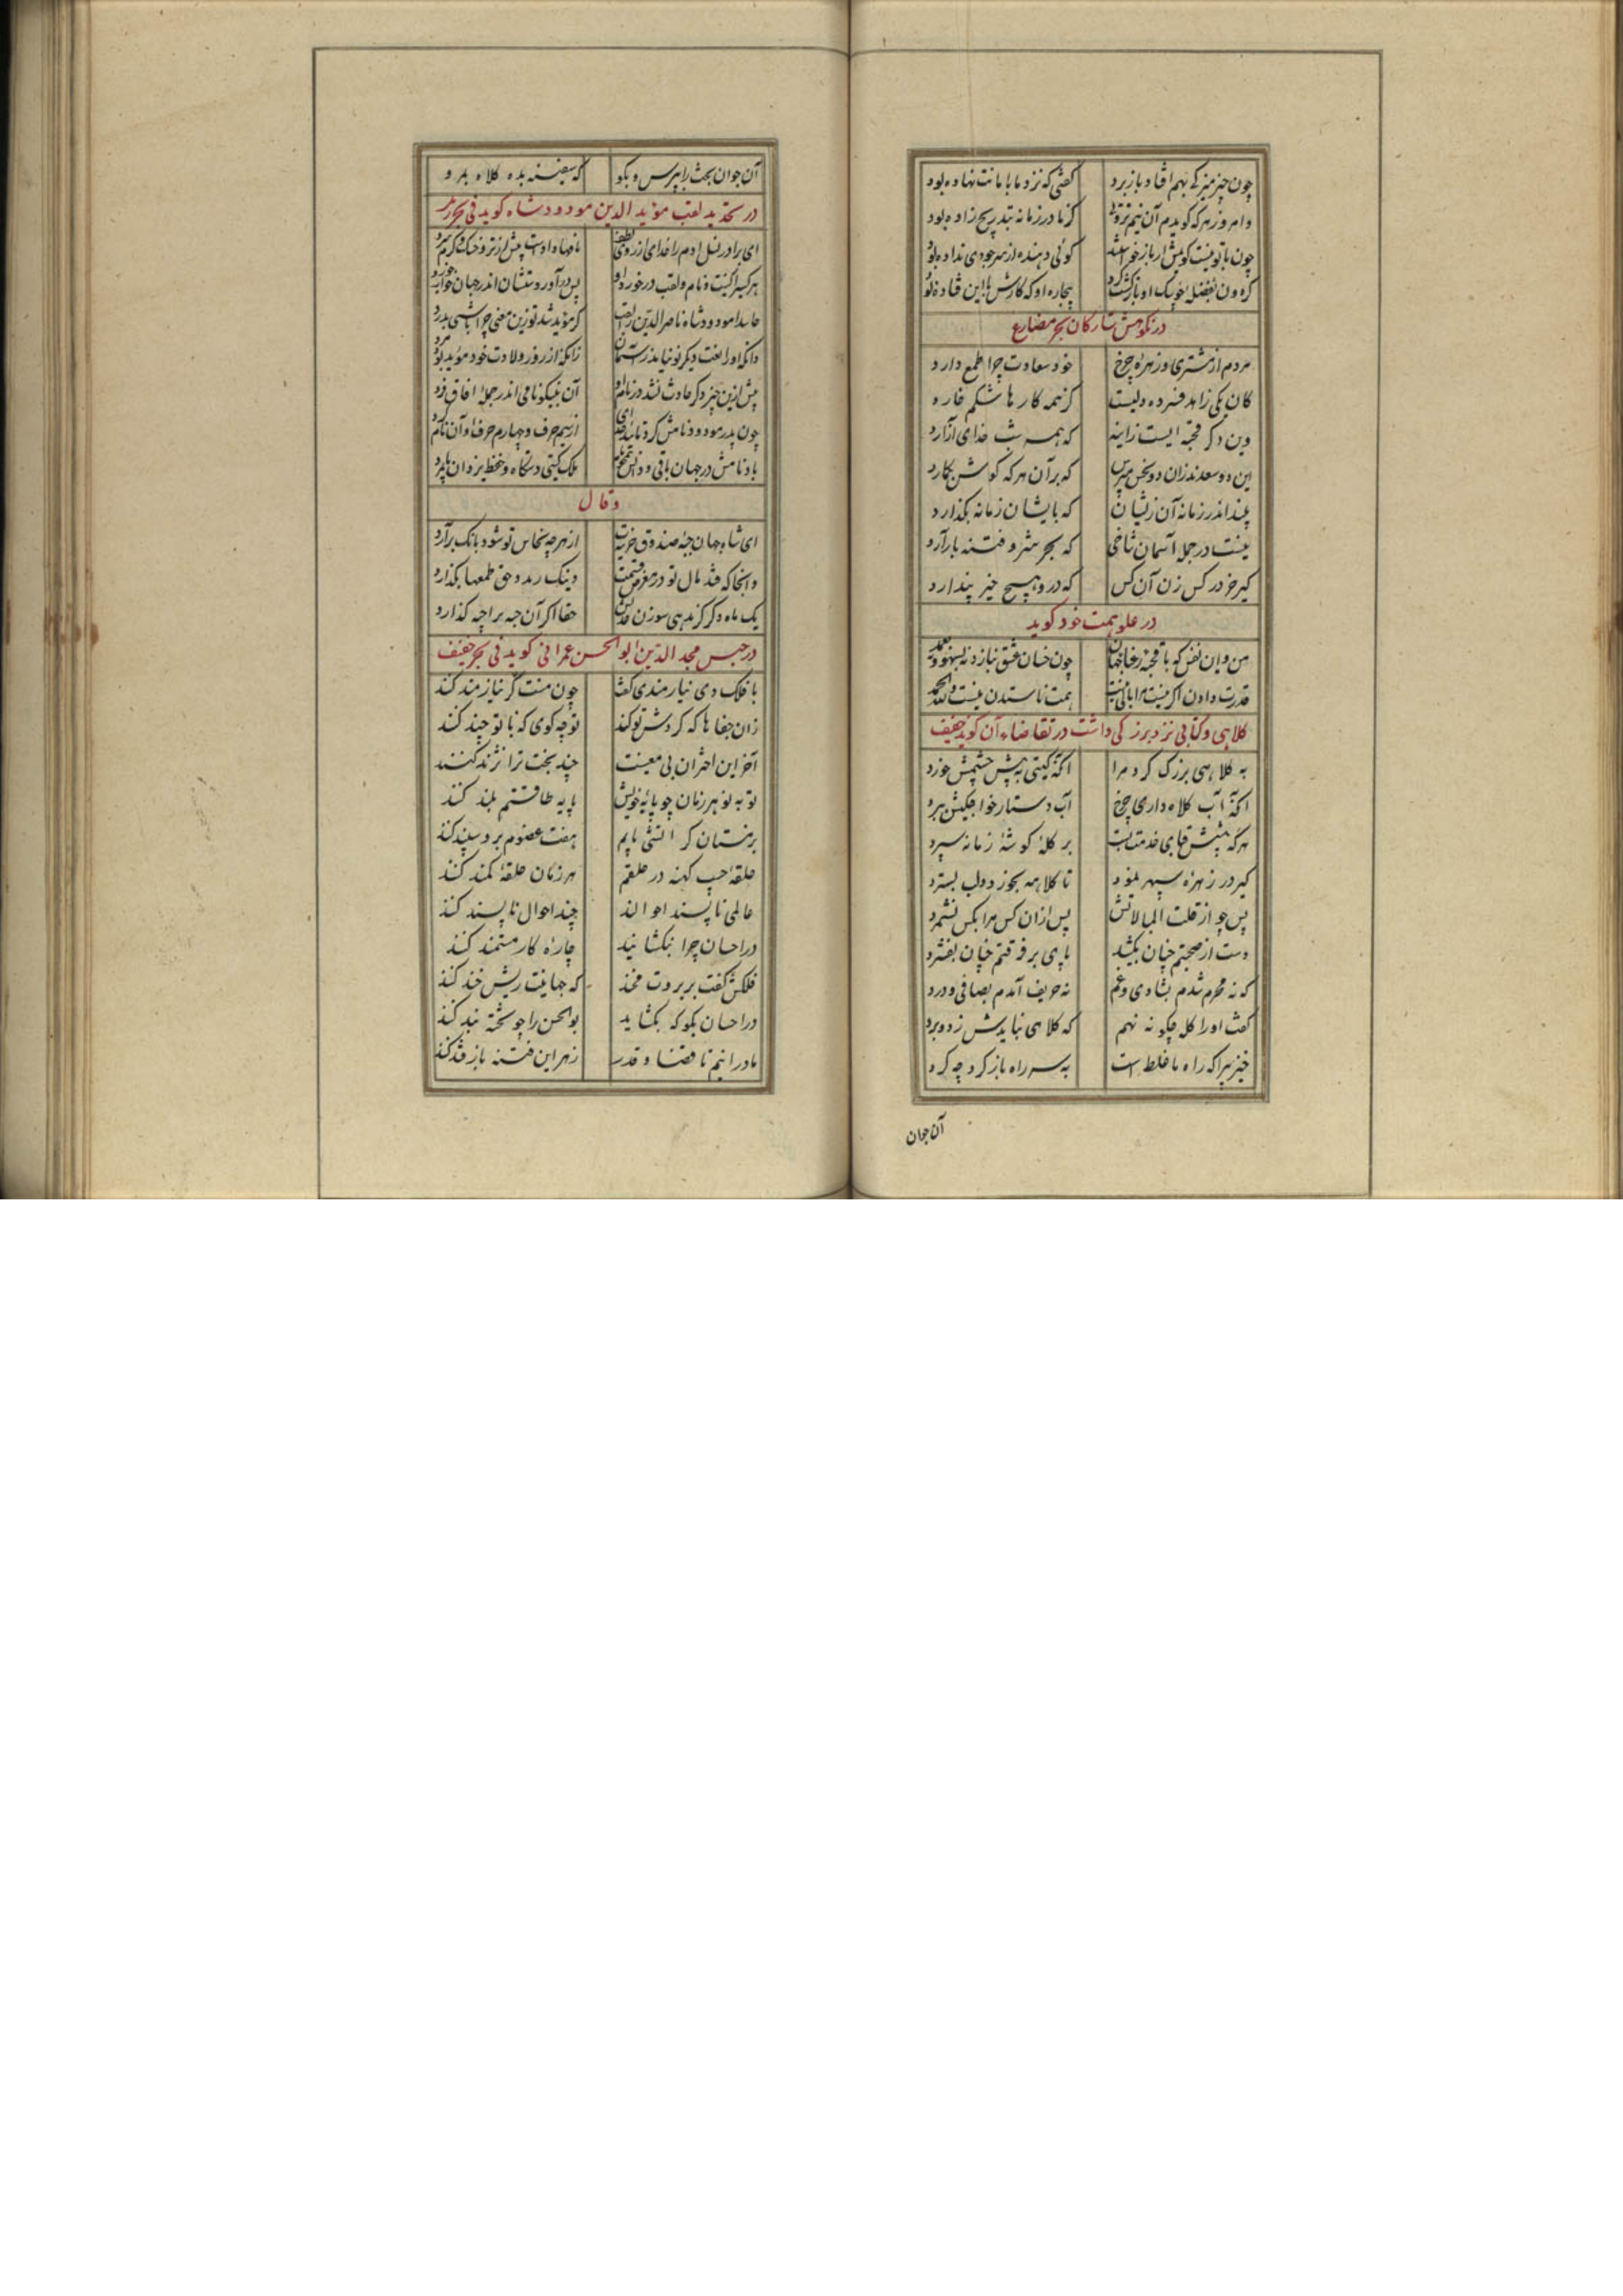 چون چیز میز کی بهم افتاد باز برد کفتی که نزد ما بامانت نهاده بود
وامروز هرکه کویدم آن نیم ثروتی کز مادر زمانه بتدریج زاده بود
چون با تو نیست کویمش ار باز خواستند کوئی دهنده از سر جودی نداده بود
کردون بغضله باز کشت بیچاره او که کارش با این فتاده بود
در نکوهش ستارکان بحر مضارع
مردم از مشتری و زهره چرخ خود سعادت چرا طمع دارد
کان یکی زاهد فسرده دلیست کز همه کارها شکم خارد
وین دکر قحبه ایست زانیه که همه شب خدای آزارد
این دو سعدند زان دو نحس مپرس که بر آن هرکه کوشش بکارد
پند اندر زمانه آن زنیان که بایشان زمانه بکذارد
نیست در جمله آسمان شاخی که بجز شر و فتنه بار آرد
کیر خر در کس زن آن کس که درو هیچ خیر پندارد
در علو همت خود کوید
من و آن نفس که با قحبه رعنا جهان چون خسان عشق نبازد نه بسهو و نه بعمد
قدرت دادن اکر نیست مرا باکی نیست همت ناستدن نیست و لله الحمد
کلاهی و کتابی نزد بزرکی داشت در تقاضاء آن کوید خفیف
به کلاهی بزرک کرد مرا آنکه کیتی به پیش چشمش خرد
آنکه آب کلاه داری چرخ آب دستار خواجکیش ببرد
هرکه پیشش قبای خدمت بست بر کله کوشهٔ زمانه سپرد
کیر در زهره سپهر نمود تا کلاهم بجوز دولب بسترد
پس چو از قلت المبالاتش پس ازان کس مرا بکس نشمرد
دست از صحبتم چنان بکشید پای بر فرقتم چنان بفشرد
که نه محرم شدم بشادی و غم نه حریف آمدم بصافی و درد
کفت او را کله چکونه نهم که کلاهی نبایدش زد و برد
خیز پیرا که راه ما غلط است به سر راه باز کرد چه کرد
آن جوان
آن جوان بحث را بپرس و بکو که سفینه بده کلاه ببرد
در تحدید لقب مؤید الدین مودود شاه کوید فی بحر رمل
ای برادر نسل آدم را خدای از روی لطف نامها دادست پیش از تر و خشک و کرم و سرد
هر کسیرا کنیت و نام و لقب در خورد او پس در آوردستشان اندر جهان خواب و خورد
حاسدا مودود شاه ناصر الدین را لقب کر مؤید شد تو زین معنی چرا باشی بدرد
دانکه او را لغت دیکر نو نیامد ز آسمان زانکه از روز ولادت خود مؤید بود مرد
پیش ازین چیز دکر حادث نشد در نام او آن نیکونامی اندر جمله آفاق فرد
چون پدر مودود نامش کرد تائید خدای از سیم حرف و چهارم حرف او آن نام کرد
باد نامش در جهان باقی ملک کیتی دستکاه و حفظ یزدان پایمرد
و قال
ای شاه جهان جبه صندوق خزینت از هر چه نخاس تو شود بانک برآرد
وانجا که فتد مال تو در معرض قسمت دینک رسد و حق طمعها بکذارد
یک ماه دکر کر ندهی سوزن حقا اکر آن جبه براجه کذارد
در حبس مجد الدین ابو الحسن عمرانی کوید فی بحر خفیف
با فلک دی نیازمندی کفت چون منت کر نیازمند کند
زان جفاها که کردش تو کند تو چه کوی که با تو چند کند
آخر این اختران بی معنیت چند بخت ترا نژند کنند
نو به نو هر زمان چو پایهٔ خویش پایه طاقتم بلند کند
بر نستان کر آتشی یابم هفت عضوم برو سپند کند
حلقهٔ جیب کهنه در حلقم هر زمان حلقهٔ کمند کند
عالمی ناپسند احوالند چند احوال ناپسند کند
در احسان چرا بنکشائید چارهٔ کار مستمند کند
فلکش کفت بر بروت مخند که جهانیت ریش خند کند
در احسان بکو که بکشاید بو الحسن را چو تخته بند کند
مادر اینیم تا قضا و قدر زهر این فتنه باز قند کند